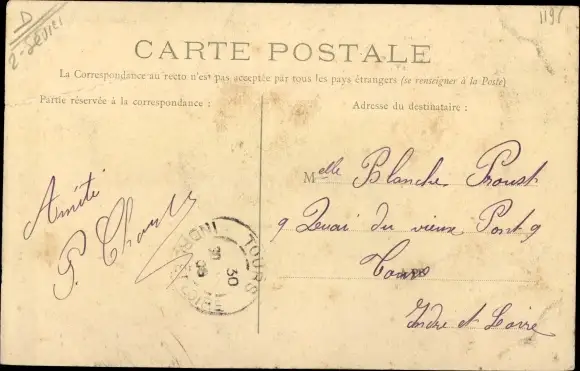 D
2-Sèvres
1191
CARTE POSTALE
La Correspondance au recto n'est pas acceptée par tous les pays étrangers (se renseigner à la Poste)
Partie réservée à la correspondance :
Adresse du destinataire :
Amitié
P.
Melle Blanche Proust
9 Quai du vieux Pont 9
Tours
Indre et Loire
TOURS
30
INDRE